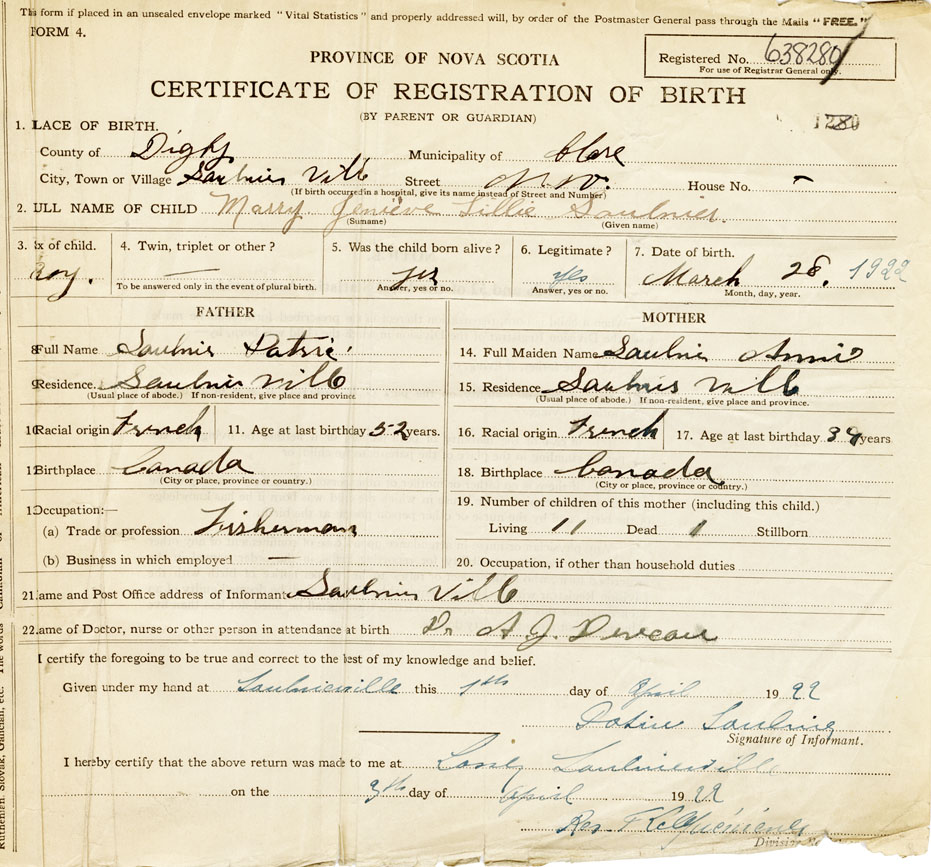 This form if placed in an unsealed envelope marked "Vital Statistics" and properly addressed will, by order of the Postmaster General pass through the Mails "FREE."
FORM 4.
PROVINCE OF NOVA SCOTIA
Registered No. 638280
For use of Registrar General only.
CERTIFICATE OF REGISTRATION OF BIRTH
(BY PARENT OR GUARDIAN)
1280
1. LACE OF BIRTH.
County of Digby Municipality of Clare
City, Town or Village Saulnis Ville Street House No. -
(If birth occurred in a hospital, give its name instead of Street and Number)
2. ULL NAME OF CHILD Marry Genieve Lillie Saulnier
(Surname) (Given name)
3. x of child. 4. Twin, triplet or other? 5. Was the child born alive? 6. Legitimate? 7. Date of birth.
boy. — yes yes March 28, 1922
To be answered only in the event of plural birth. Answer, yes or no. Answer, yes or no. Month, day, year.
FATHER
8 Full Name Saulnis Patric
9 Residence. Saulnis Ville
(Usual place of abode.) If non-resident, give place and province
10 Racial origin French 11. Age at last birthday 52 years.
1 Birthplace Canada
(City or place, province or country.)
1 Occupation:—
(a) Trade or profession Fisherman
(b) Business in which employed —
MOTHER
14. Full Maiden Name Saulnis Annie
15. Residence Saulnis Ville
(Usual place of abode.) If non-resident, give place and province.
16. Racial origin French 17. Age at last birthday 39 years
18. Birthplace Canada
(City or place, province or country.)
19. Number of children of this mother (including this child.)
Living 11 Dead 1 Stillborn
20. Occupation, if other than household duties
21. ame and Post Office address of Informant Saulnis Ville
22. ame of Doctor, nurse or other person in attendance at birth Dr A. J. Deveau
I certify the foregoing to be true and correct to the best of my knowledge and belief.
Given under my hand at Saulnierville this 1th day of April 1922
Saulnie
Signature of Informant.
I hereby certify that the above return was made to me at Saulnierville
on the 3th day of April 1922
Division